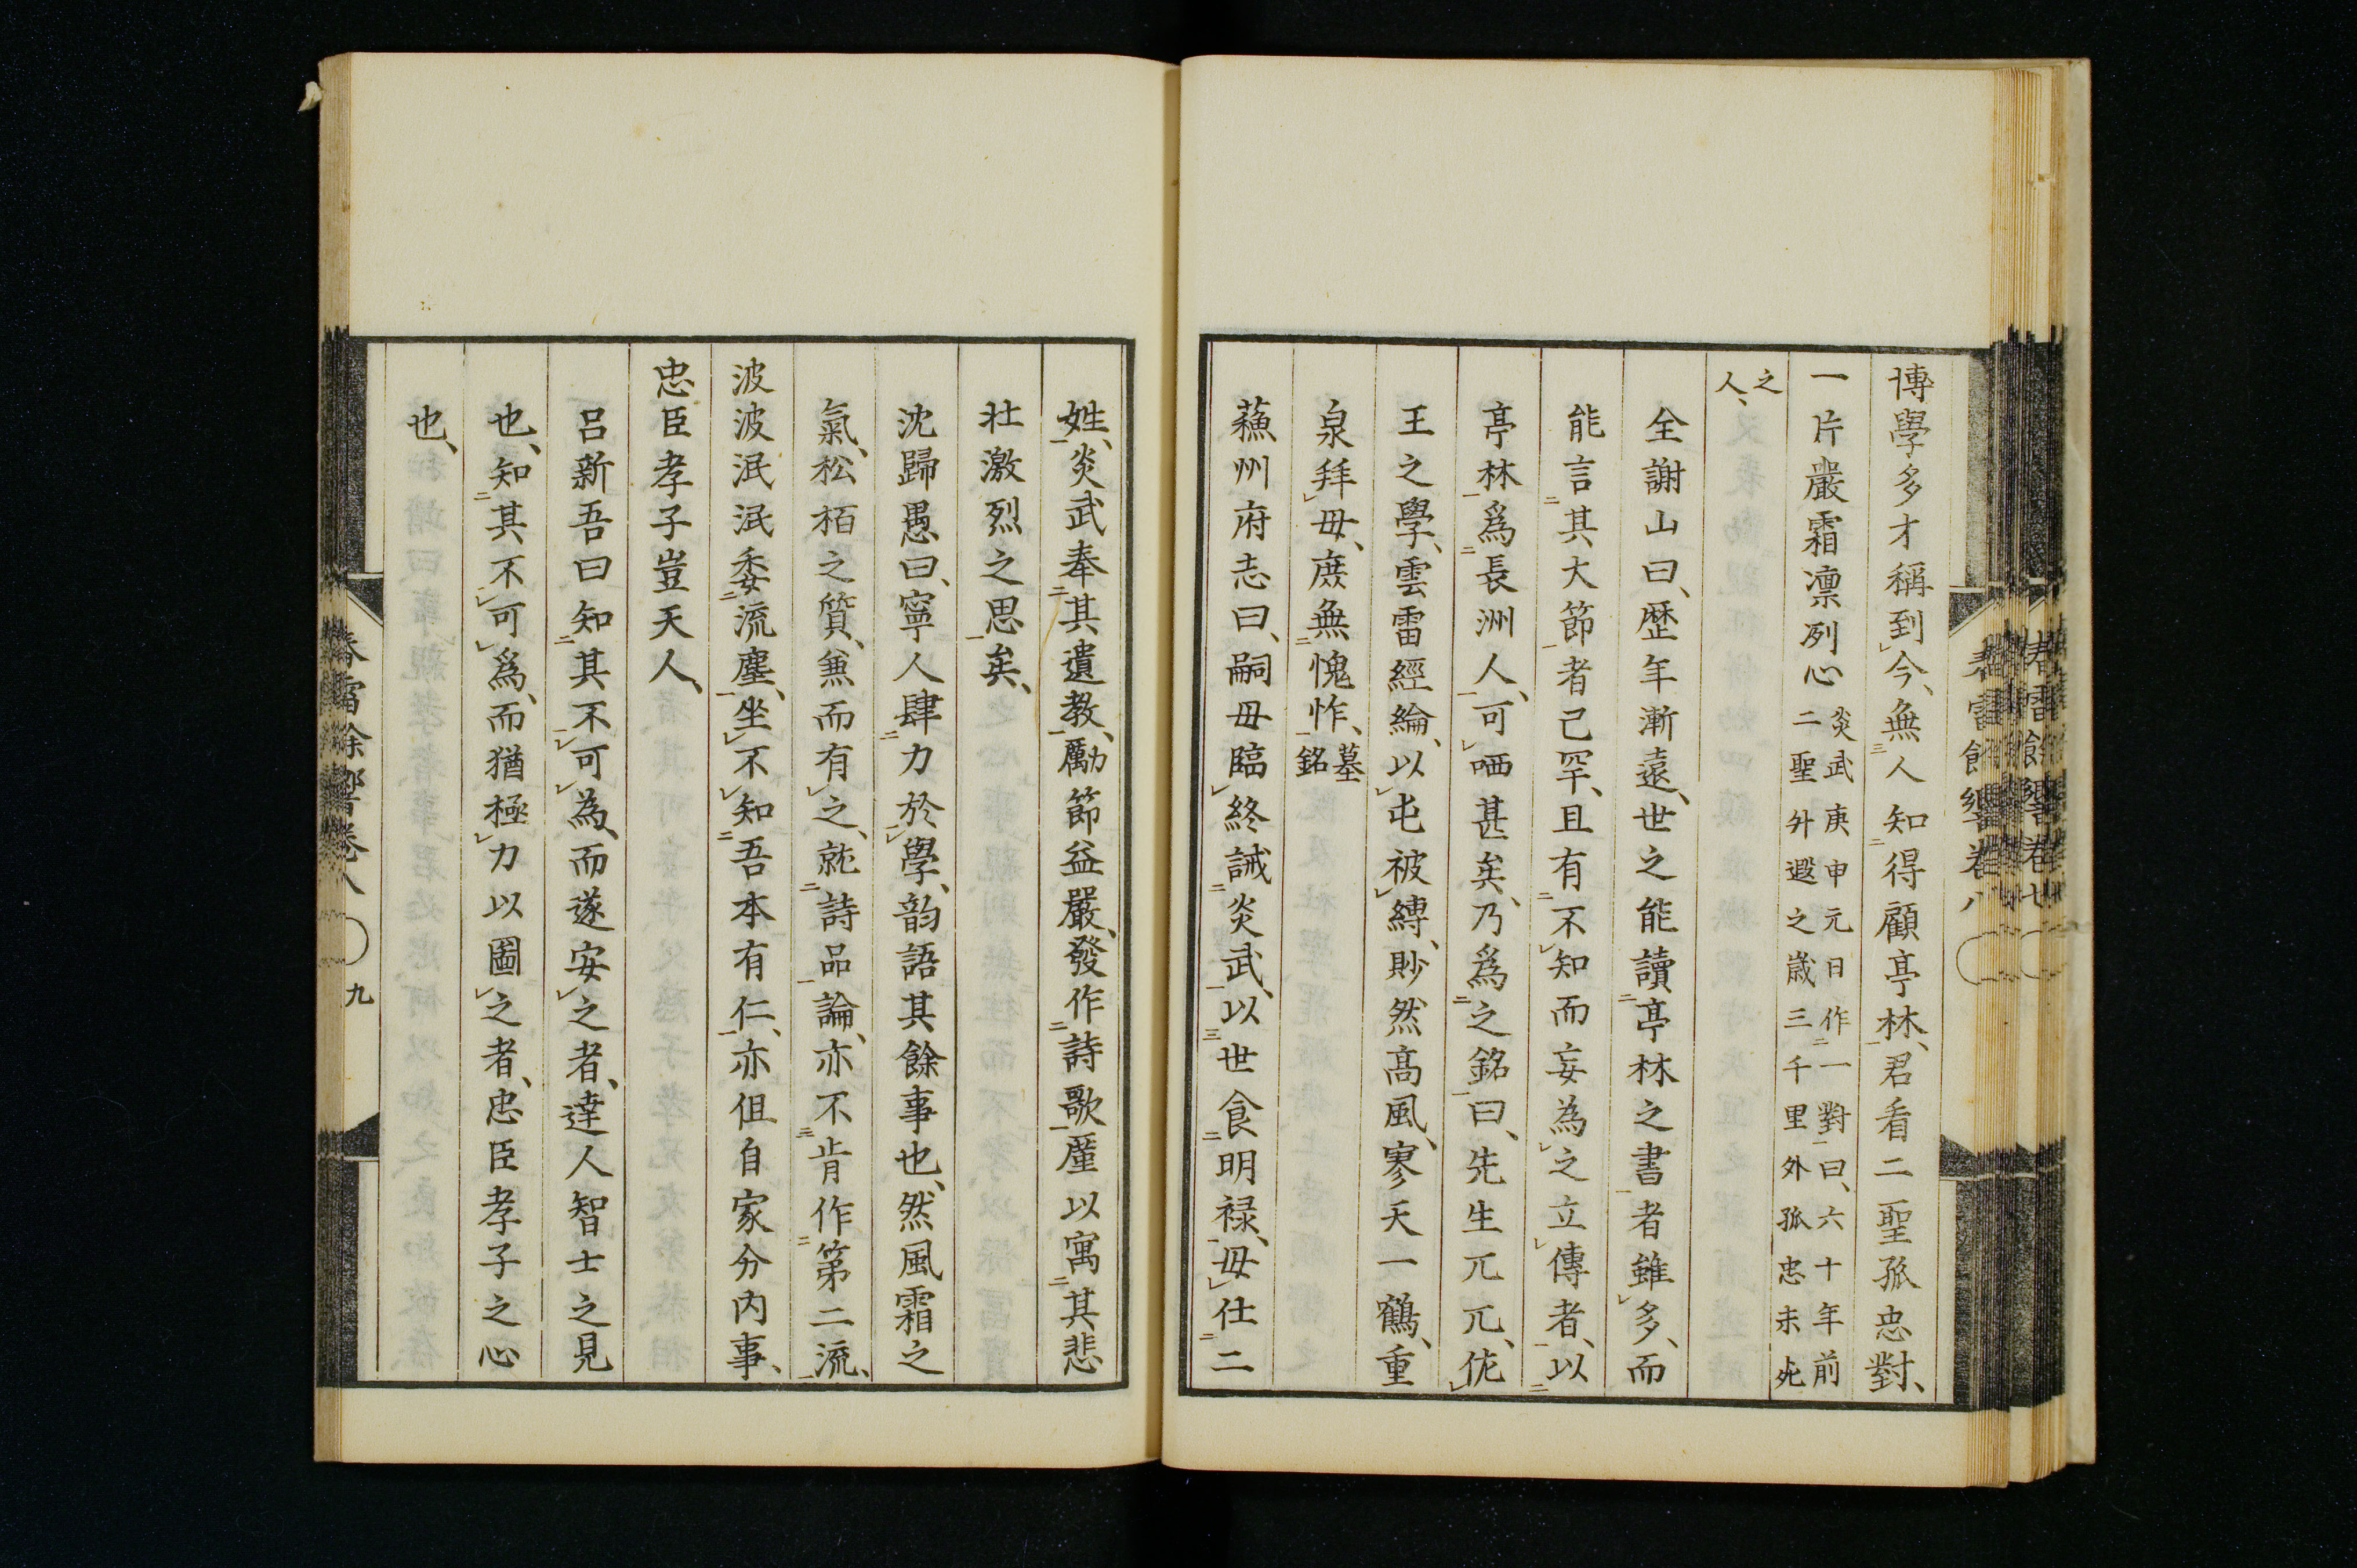 博學多才稱到今、無人知得顧亭林、君看二聖孤忠對、
一片嚴霜凛冽心
炎武庚申元日作一對曰、六十年前
二聖升遐之歳三千里外孤忠未死
之
人、
全謝山曰、歴年漸遠、世之能讀亭林之書者雖多、而
能言其大節者已罕、且有不知而妄為之立傳者、以
亭林爲長洲人、可哂甚矣、乃爲之銘曰、先生兀兀、佐
王之學、雲雷經綸、以屯被縛、眇然高風、寥天一鶴、重
泉拜母、庶無愧怍、
墓
銘
蘓州府志曰、嗣母臨終誡炎武、以世食明禄、毋仕二
姓、炎武奉其遺教、勵節益嚴、發作詩歌、厪以寓其悲
壮激烈之思矣、
沈歸愚曰、寧人肆力於學、韵語其餘事也、然風霜之
氣、松栢之質、兼而有之、就詩品論、亦不肯作第二流、
波波泯泯委流塵、坐不知吾本有仁、亦但自家分内事、
忠臣孝子豈天人、
呂新吾曰知其不可為、而遂安之者、達人智士之見
也、知其不可爲、而猶極力以圖之者、忠臣孝子之心
也、
春雷餘響卷八
九